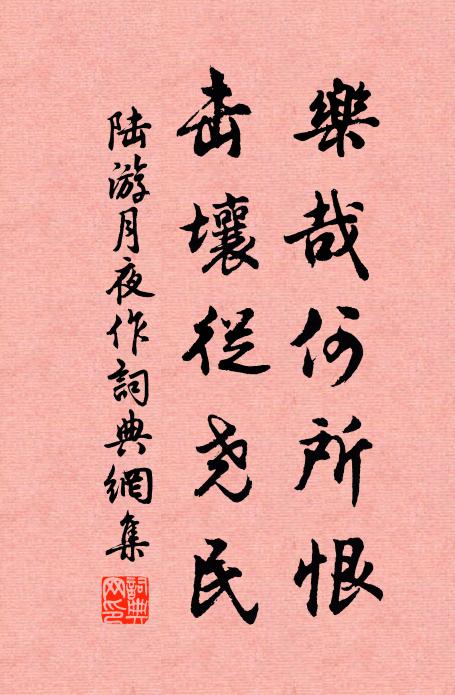 樂哉何所恨
击壤從尧民
陸游月夜作詞典網集
詞典網印